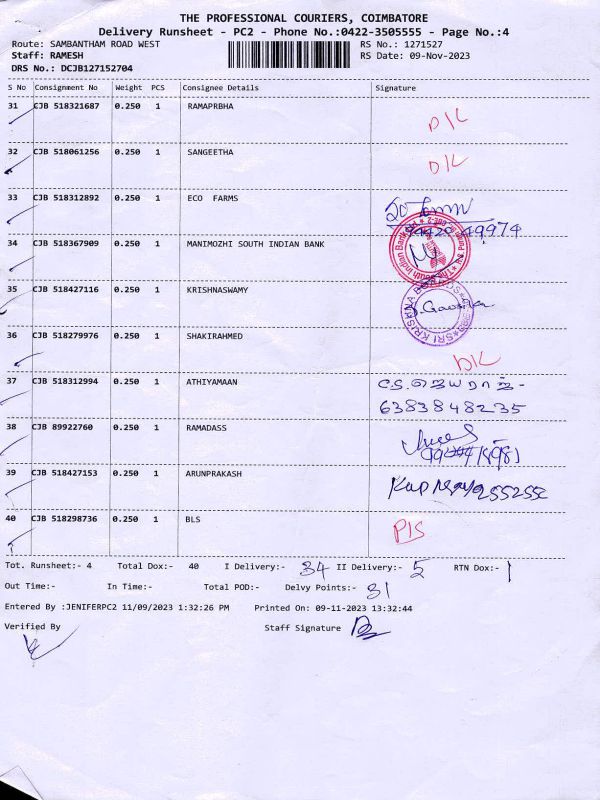 THE PROFESSIONAL COURIERS, COIMBATORE
Delivery Runsheet - PC2 - Phone No.:0422-3505555 - Page No.:4
Route: SAMBANTHAM ROAD WEST RS No.: 1271527
Staff: RAMESH RS Date: 09-Nov-2023
DRS No.: DCJB127152704
S No Consignment No Weight PCS Consignee Details Signature
31 CJB 518321687 0.250 1 RAMAPRBHA D/L
32 CJB 518061256 0.250 1 SANGEETHA D/L
33 CJB 518312892 0.250 1 ECO FARMS
34 CJB 518367909 0.250 1 MANIMOZHI SOUTH INDIAN BANK
35 CJB 518427116 0.250 1 KRISHNASWAMY
36 CJB 518279976 0.250 1 SHAKIRAHMED D/L
37 CJB 518312994 0.250 1 ATHIYAMAAN
6383848235
38 CJB 89922760 0.250 1 RAMADASS
39 CJB 518427153 0.250 1 ARUNPRAKASH
40 CJB 518298736 0.250 1 BLS P/S
Tot. Runsheet:- 4 Total Dox:- 40 I Delivery:- 34 II Delivery:- 5 RTN Dox:- 1
Out Time:- In Time:- Total POD:- Delvy Points:- 31
Entered By :JENIFERPC2 11/09/2023 1:32:26 PM Printed On: 09-11-2023 13:32:44
Verified By Staff Signature